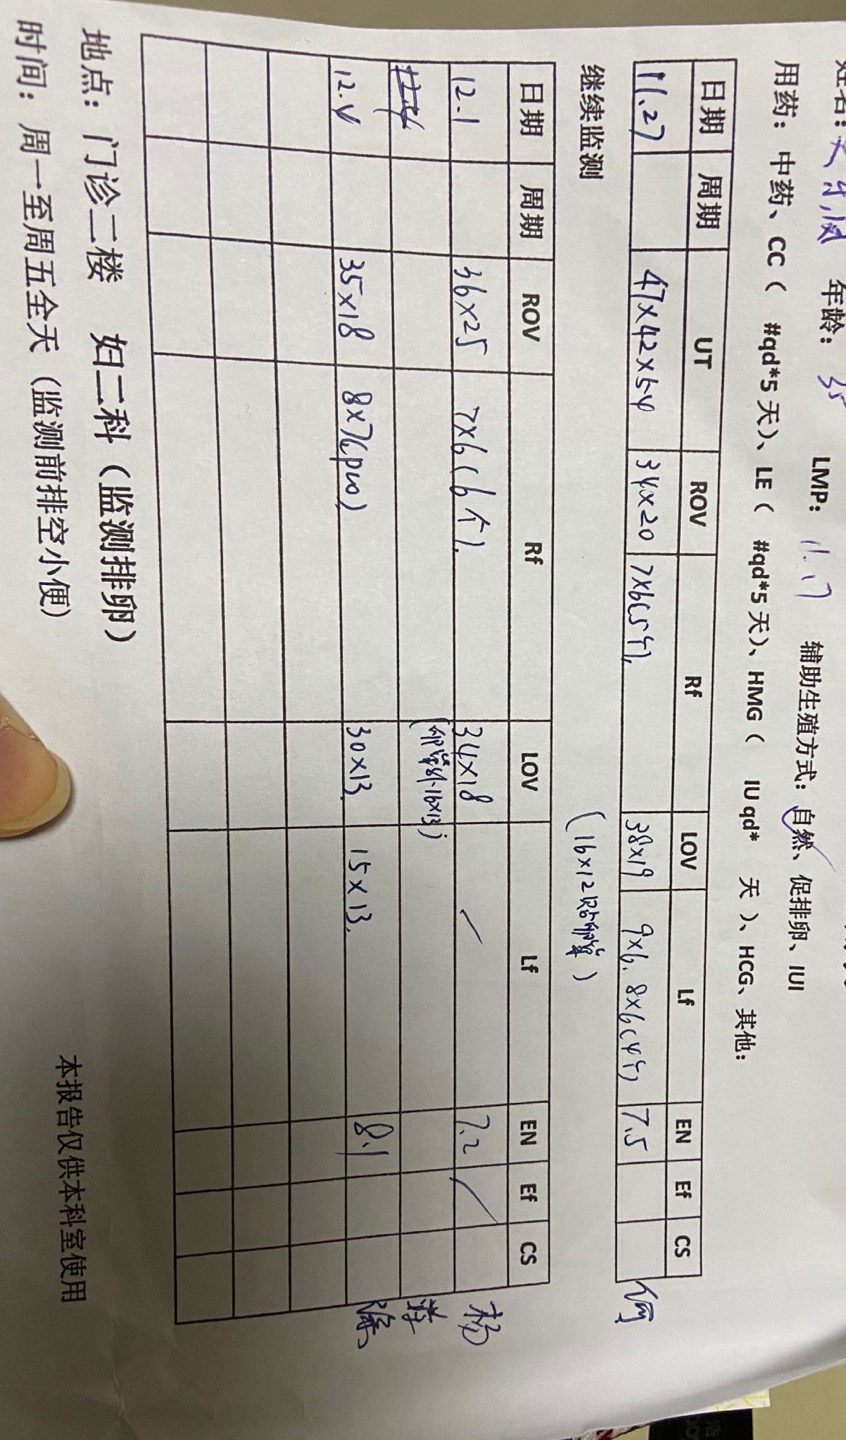 姓名： 年龄：35 LMP：11.17 辅助生殖方式：自然、促排卵、IUI
用药：中药、CC（ #qd*5天）、LE（ #qd*5天）、HMG（ IU qd* 天）、HCG、其他：
日期 周期 UT ROV Rf LOV Lf EN Ef CS
11.27 47×42×54 34×20 7×6(5个) 38×19 9×6、8×6(4个) 7.5 何
继续监测 (16×12 卵巢)
日期 周期 ROV Rf LOV Lf EN Ef CS
12.1 36×25 7×6(6个) 34×18 / 7.2 / 杨
(卵巢外16×13)
12.4 35×18 8×7(pco) 30×13 15×13 8.1
地点：门诊二楼 妇二科（监测排卵）
时间：周一至周五全天（监测前排空小便）
本报告仅供本科室使用